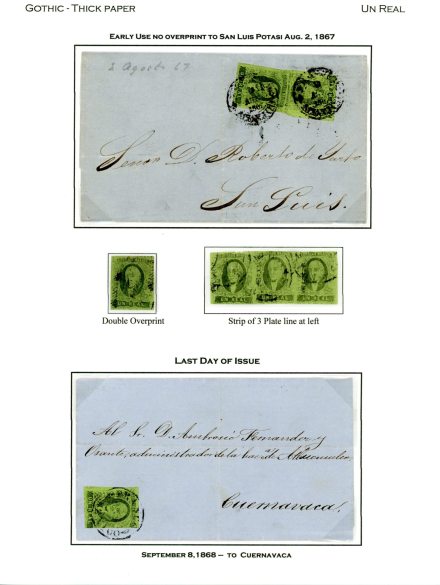 Gothic - Thick paper
Un Real
Early Use no overprint to San Luis Potasi Aug. 2, 1867
2 Agosto 67
Señor D. Roberto de
San Luis.
UN REAL
Double Overprint
UN REAL UN REAL UN REAL
Strip of 3 Plate line at left
Last Day of Issue
Al Sr. D. Ambrosio Fernandez y
administrador de la
Cuernavaca.
September 8,1868 -- to Cuernavaca